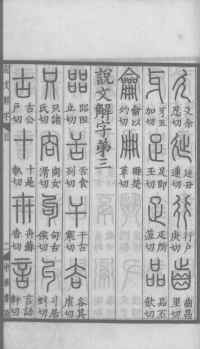 廴余忍切 㢟丑連切 行戶庚切 齒昌里切
牙五加切 足即玉切 疋所菹切 品丕飲切
龠以灼切 冊楚革切
說文解字弟三
㗊阻立切 舌食列切 干古寒切 𧮫其虐切
只諸氏切 㕯女滑切 句古侯切 丩居虯切
古公戶切 十是執切 卅穌沓切 言語軒切